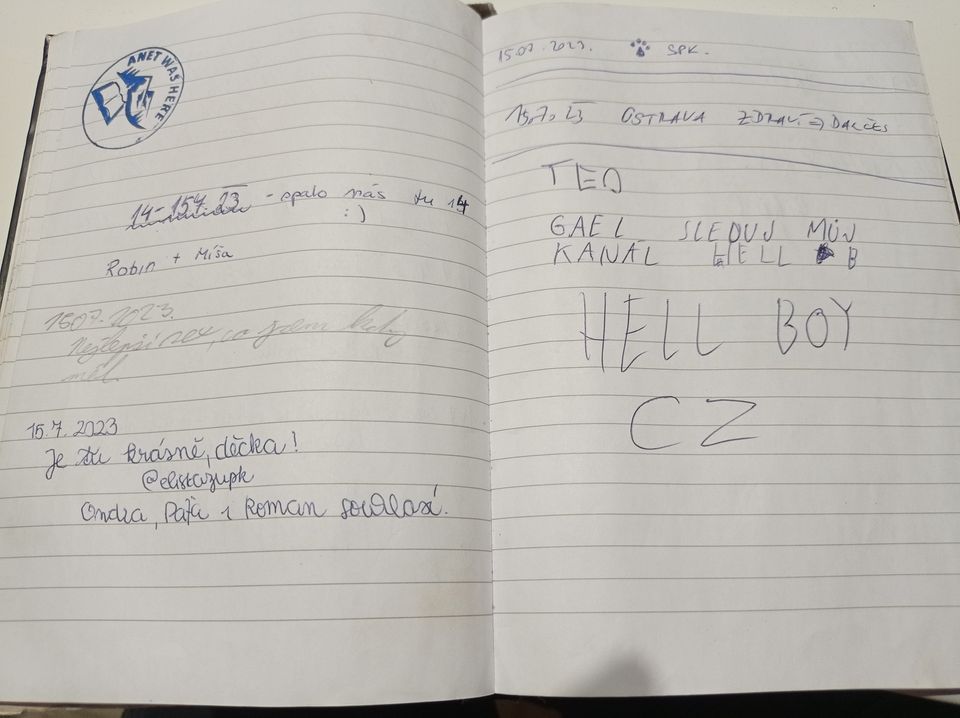 ANET WAS HERE
14-15.7. 23 - spalo nás tu 14
:)
Robin + Míša
15.07.2023.
Nejlepší sex, co jsem kdy
měl.
15.7.2023
Je tu krásně, děcka!
@elistazupk
Ondra, Páťa i Roman souhlasí.
15.07.2023. SPK.
15.7.23 OSTRAVA ZDRAVÍ
TEO
GAEL SLEDUJ MŮJ
KANÁL HELL B
HELL BOY
CZ